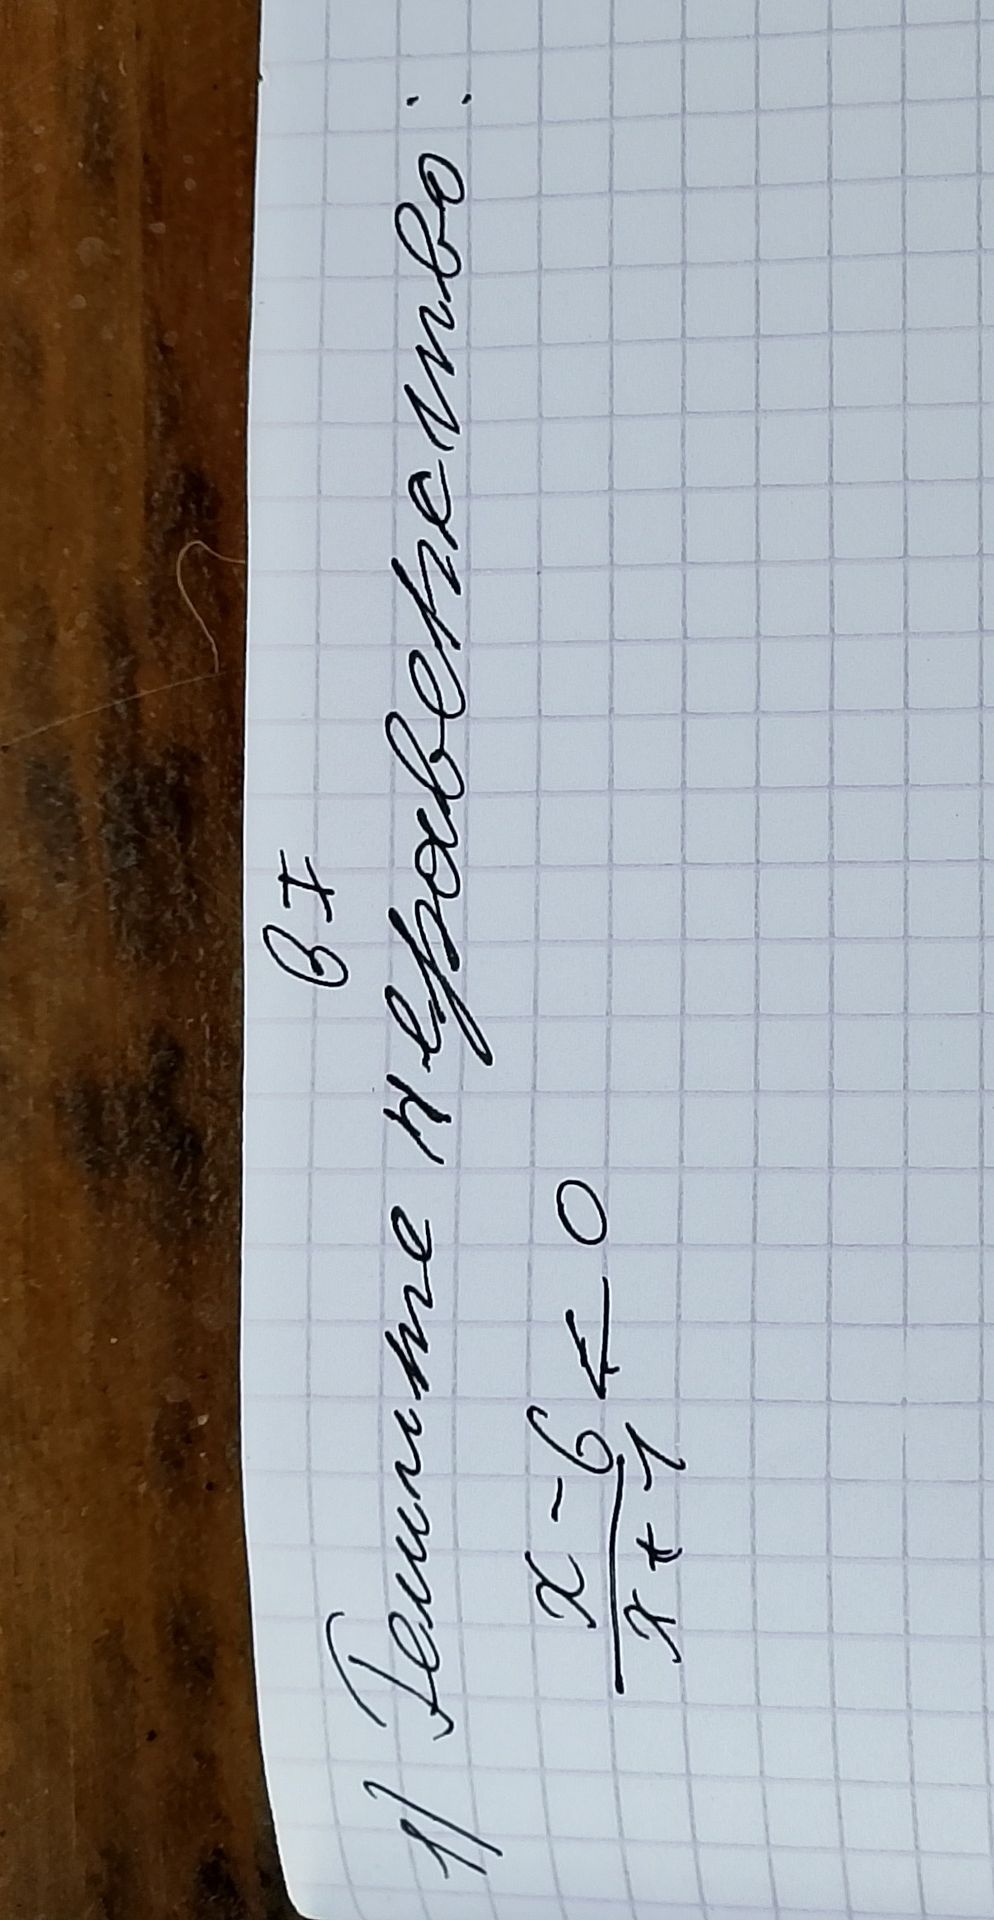 В I
1) Решите неравенство:
x - 6 < 0
x + 1